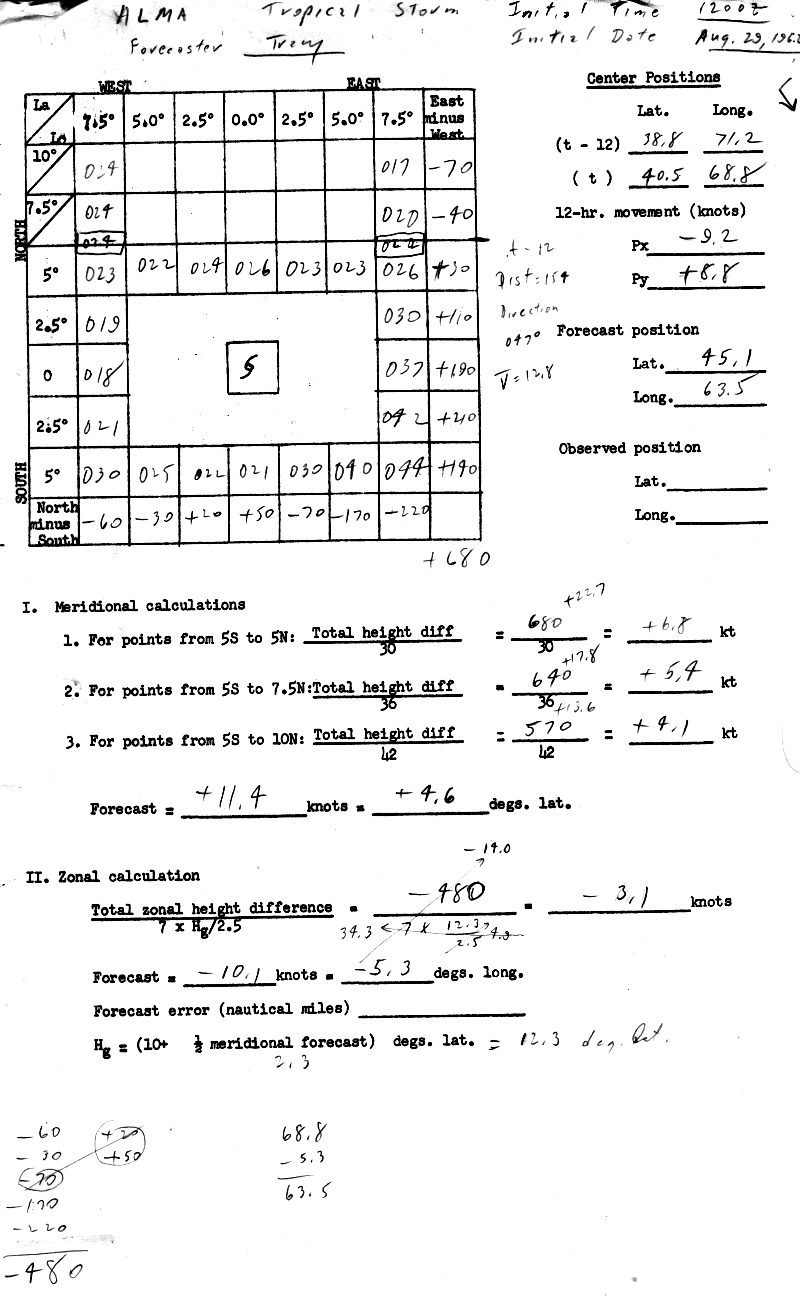 ALMA Tropical Storm Initial Time 1200Z
Forecaster Tracy Initial Date Aug. 29, 1962
WEST EAST
La Lo 7.5° 5.0° 2.5° 0.0° 2.5° 5.0° 7.5° East minus West
10° 024 017 -70
7.5° 024 020 -40
024 024
5° 023 022 024 026 023 023 026 +30
2.5° 019 030 +110
0 018 037 +190
2.5° 021 042 +210
5° 030 025 022 021 030 040 044 +140
North minus South -60 -30 +20 +50 -70 -170 -220
+680
NORTH
SOUTH
Center Positions
Lat. Long.
(t - 12) 38.8 71.2
( t ) 40.5 68.8
12-hr. movement (knots)
Px -9.2
Py +8.8
t - 12
Dist = 154
Direction
047°
V = 12.8
Forecast position
Lat. 45.1
Long. 63.5
Observed position
Lat.
Long.
I. Meridional calculations
+22.7
1. For points from 5S to 5N: Total height diff / 30 = 680 / 30 = +6.8 kt
+17.8
2. For points from 5S to 7.5N: Total height diff / 36 = 640 / 36 = +5.4 kt
+13.6
3. For points from 5S to 10N: Total height diff / 42 = 570 / 42 = +4.1 kt
Forecast = +11.4 knots = +4.6 degs. lat.
-14.0
II. Zonal calculation
Total zonal height difference = -480 = -3.1 knots
7 x Hg/2.5 34.3 7 x 12.3 / 2.5 4.9
Forecast = -10.1 knots = -5.3 degs. long.
Forecast error (nautical miles)
Hg = (10+ ½ meridional forecast) degs. lat. = 12.3 deg. lat.
2.3
-60 +20
-30 +50
-70
-170
-220
-480
68.8
-5.3
63.5